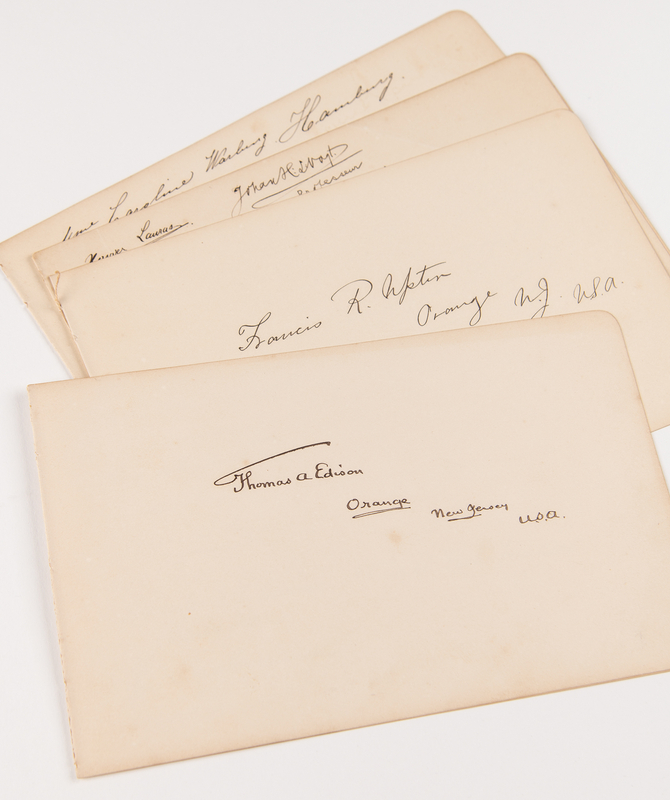 Caroline Warburg Hamburg.
Lauras.
Francis R. Upton
Orange N.J. U.S.A.
Thomas A Edison
Orange New Jersey U.S.A.